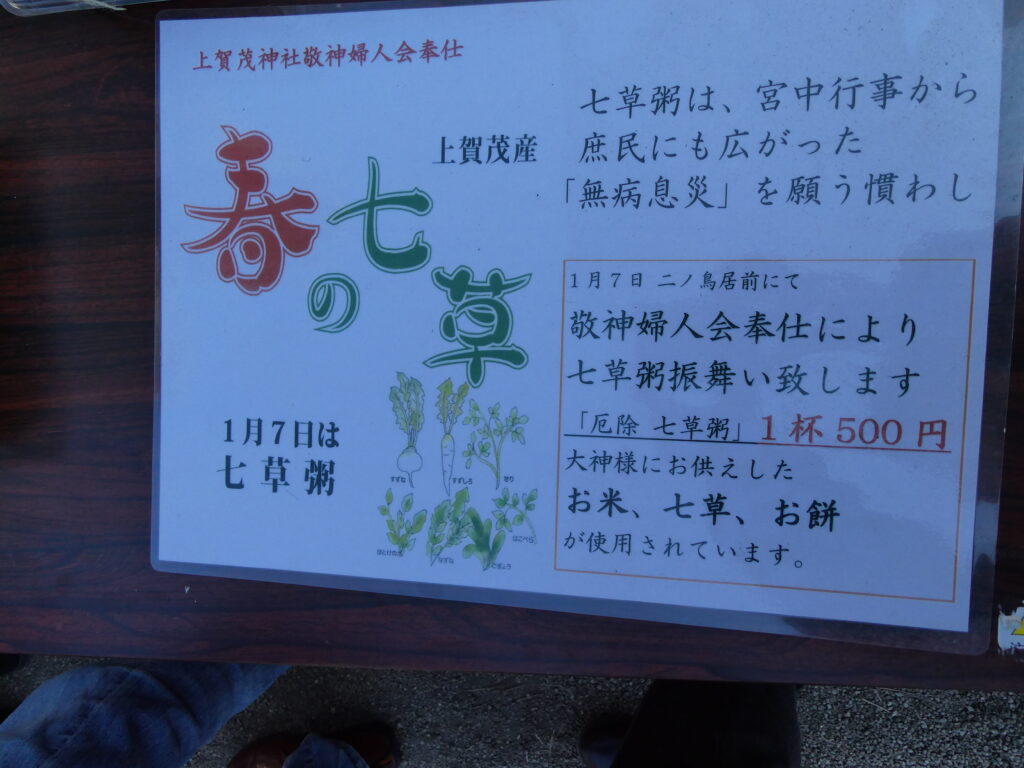 上賀茂神社敬神婦人会奉仕
上賀茂産
春の七草
1月7日は
七草粥
すずな
すずしろ
せり
ほとけのざ
なずな
ごぎょう
はこべら
七草粥は、宮中行事から
庶民にも広がった
「無病息災」を願う慣わし
1月7日 二ノ鳥居前にて
敬神婦人会奉仕により
七草粥振舞い致します
「厄除 七草粥」1杯500円
大神様にお供えした
お米、七草、お餅
が使用されています。